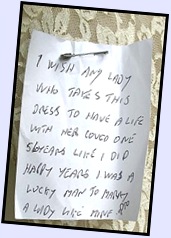 I WISH ANY LADY
WHO TAKES THIS
DRESS TO HAVE A LIFE
WITH HER LOVED ONE
56 YEARS LIKE I DID
HAPPY YEARS I WAS A
LUCKY MAN TO MARRY
A LADY LIKE MINE